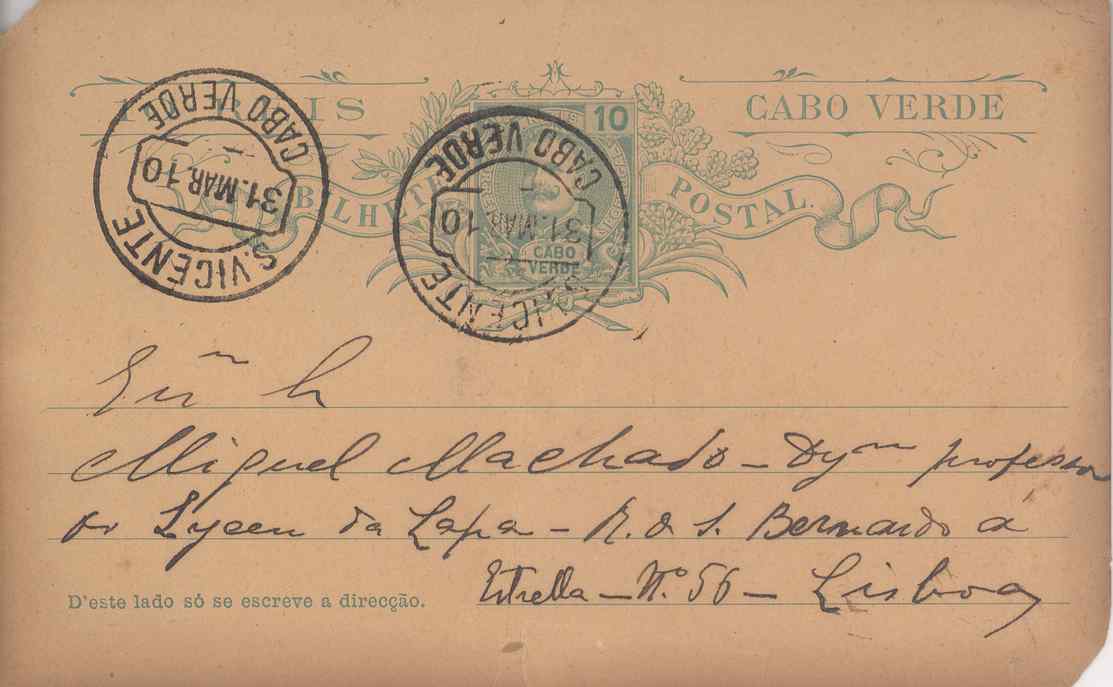 10 REIS
CABO VERDE
BILHETE POSTAL.
10
CABO
VERDE
CABO VERDE
31.MAR.10
S.VICENTE
CABO VERDE
31.MAR.10
S.VICENTE
Miguel Machado – Dgmº professor
do Lyceu da Lapa – R. de S. Bernardo á
Estrella – Nº 56 – Lisboa
D'este lado só se escreve a direcção.